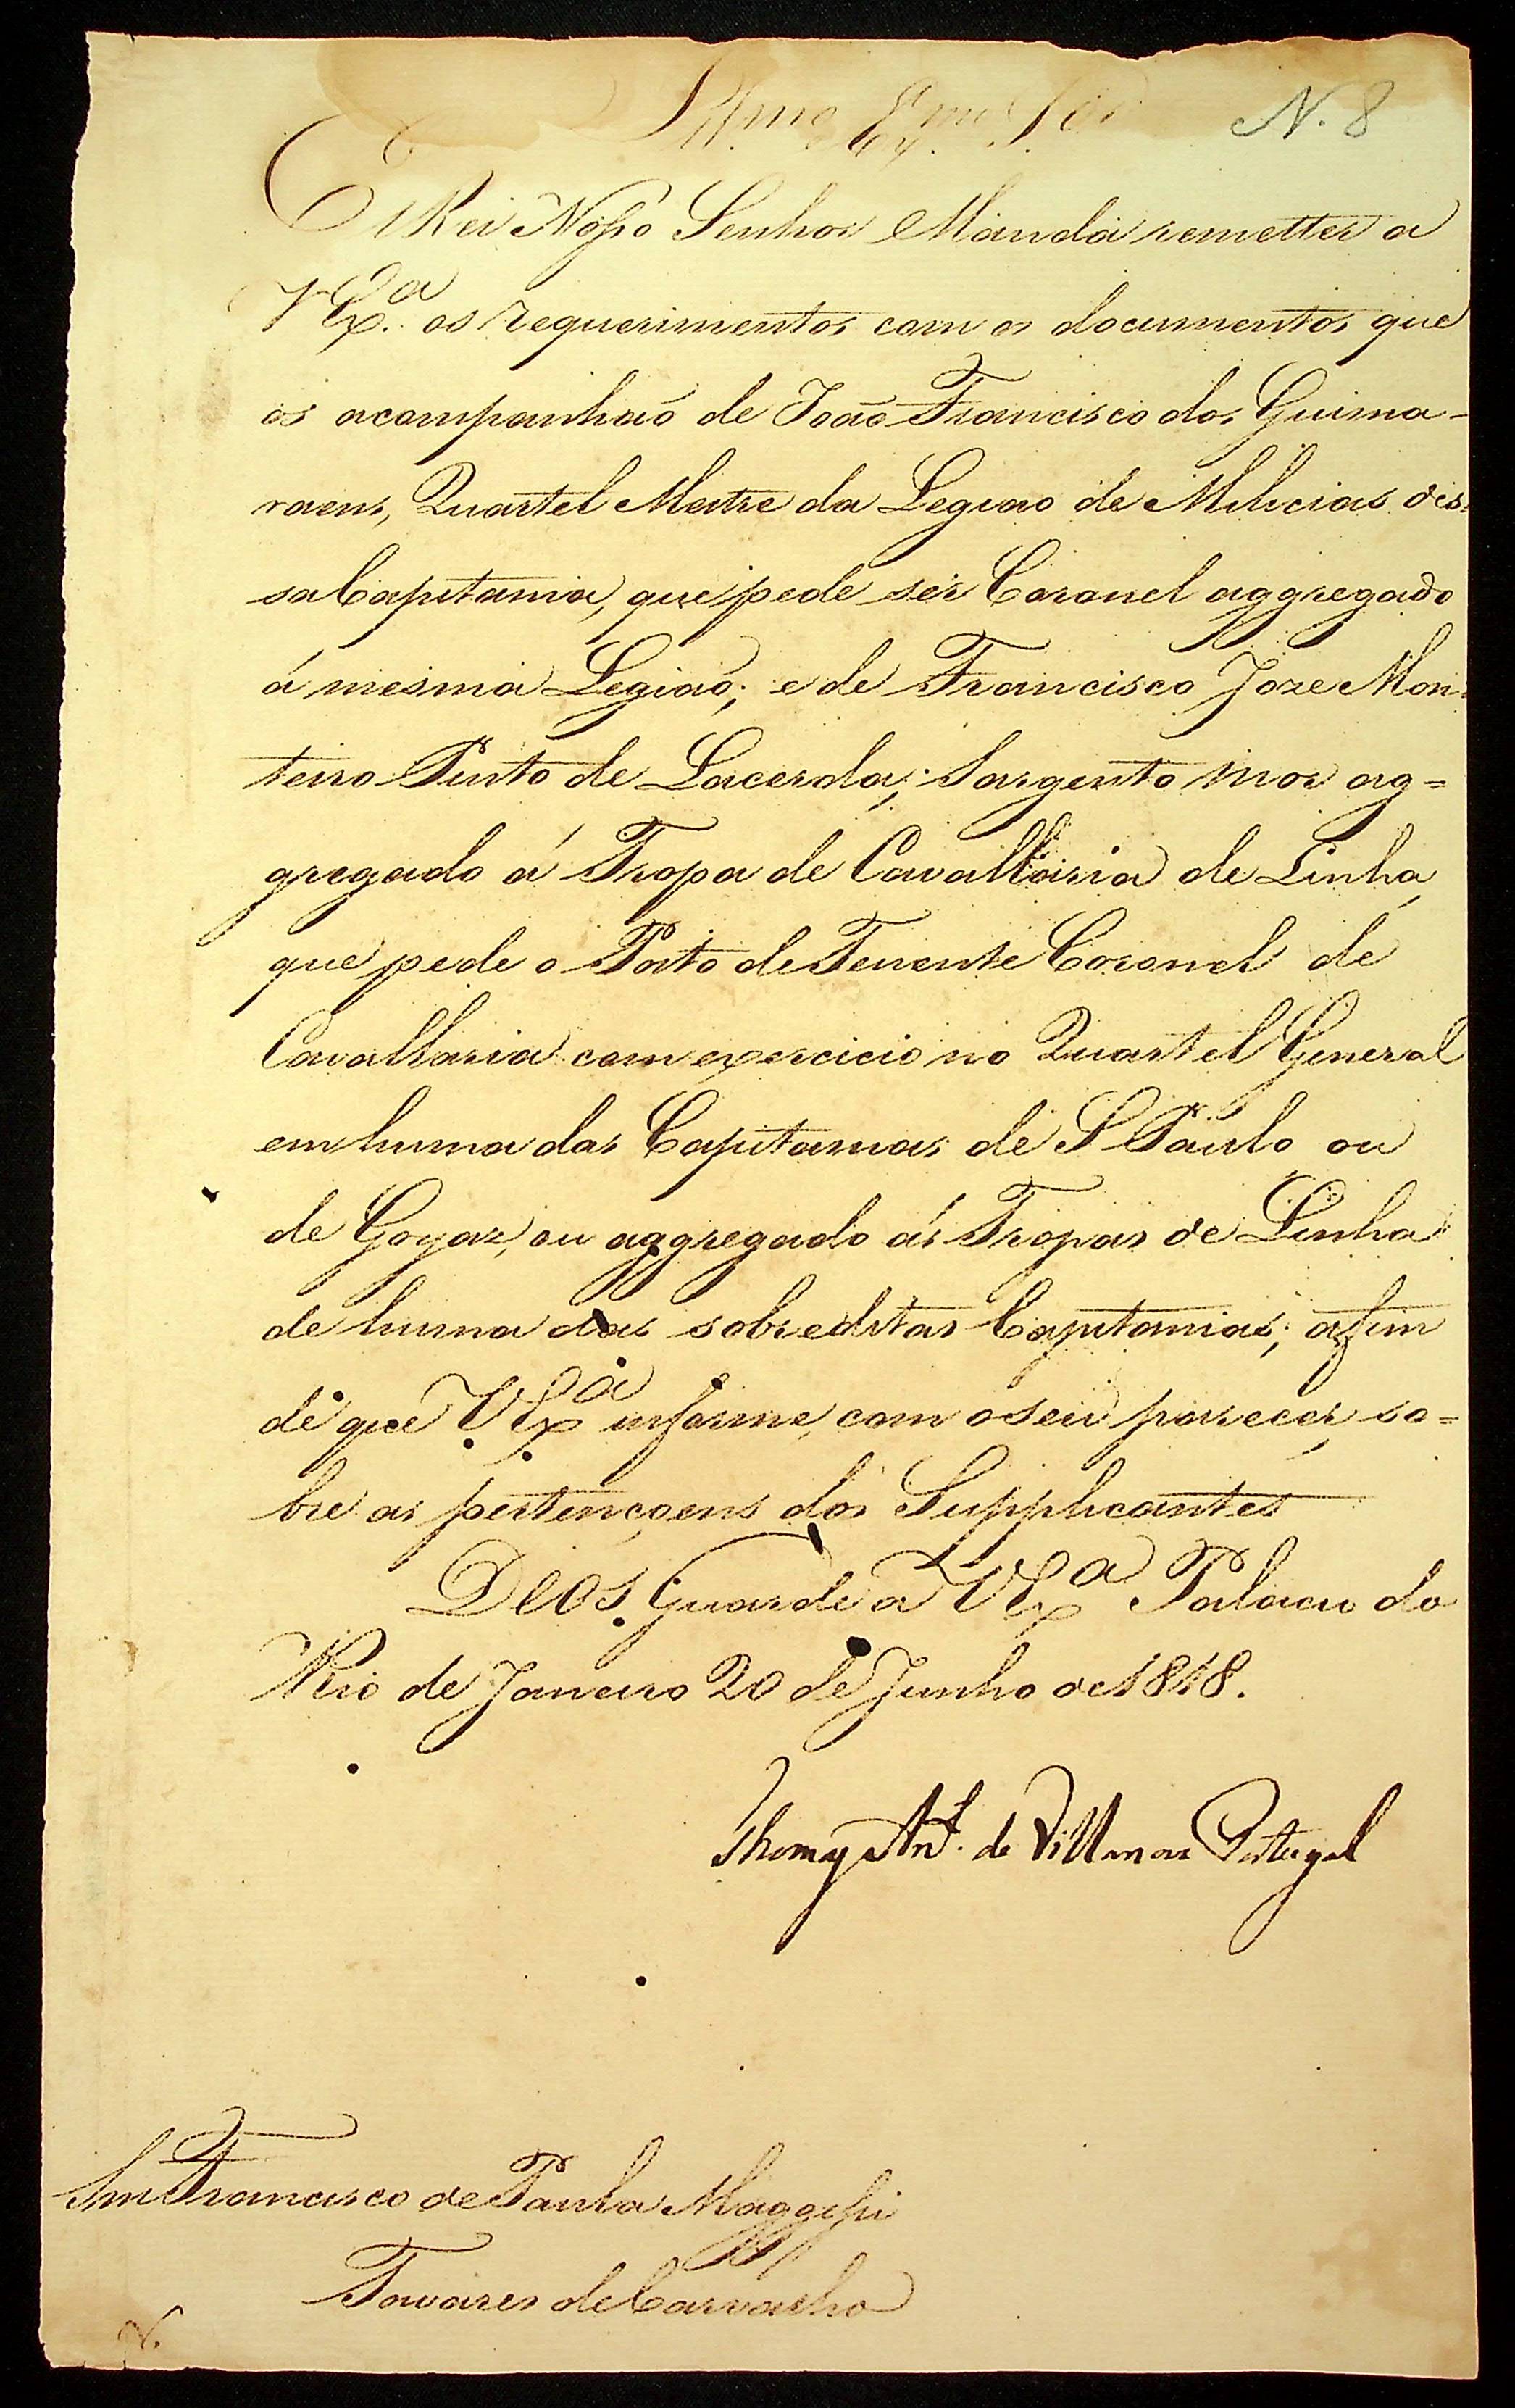 Ill.mo Ex.mo S.or N. 8
ElRei Nosso Senhor Manda remetter a
VEx.a os requerimentos com os documentos que
os acompanhaõ de Joaõ Francisco dos Guima-
raens, Quartel Mestre da Legiao de Milicias des-
sa Capitania, que pede ser Coronel aggregado
á mesma Legiaõ; e de Francisco Joze Mon-
teiro Pinto de Lacerda; Sargento mor ag=
gregado á Tropa de Cavallaria de Linha,
que pede o Posto de Tenente Coronel de
Cavallaria com exercicio no Quartel General
em huma das Capitanias de S Paulo ou
de Goyaz, ou aggregado ás Tropas de Linha
de huma das sobreditas Capitanias; afim
de que VEx.a informe, com o seu parecer, so=
bre as pertençoens dos Supplicantes
Deos Guarde a VEx.a Palacio do
Rio de Janeiro 20 de Junho de 1818.
Thomaz Ant.o de Villanova Portugal
Snr Francisco de Paula Maggessi
Tavares de Carvalho
N.